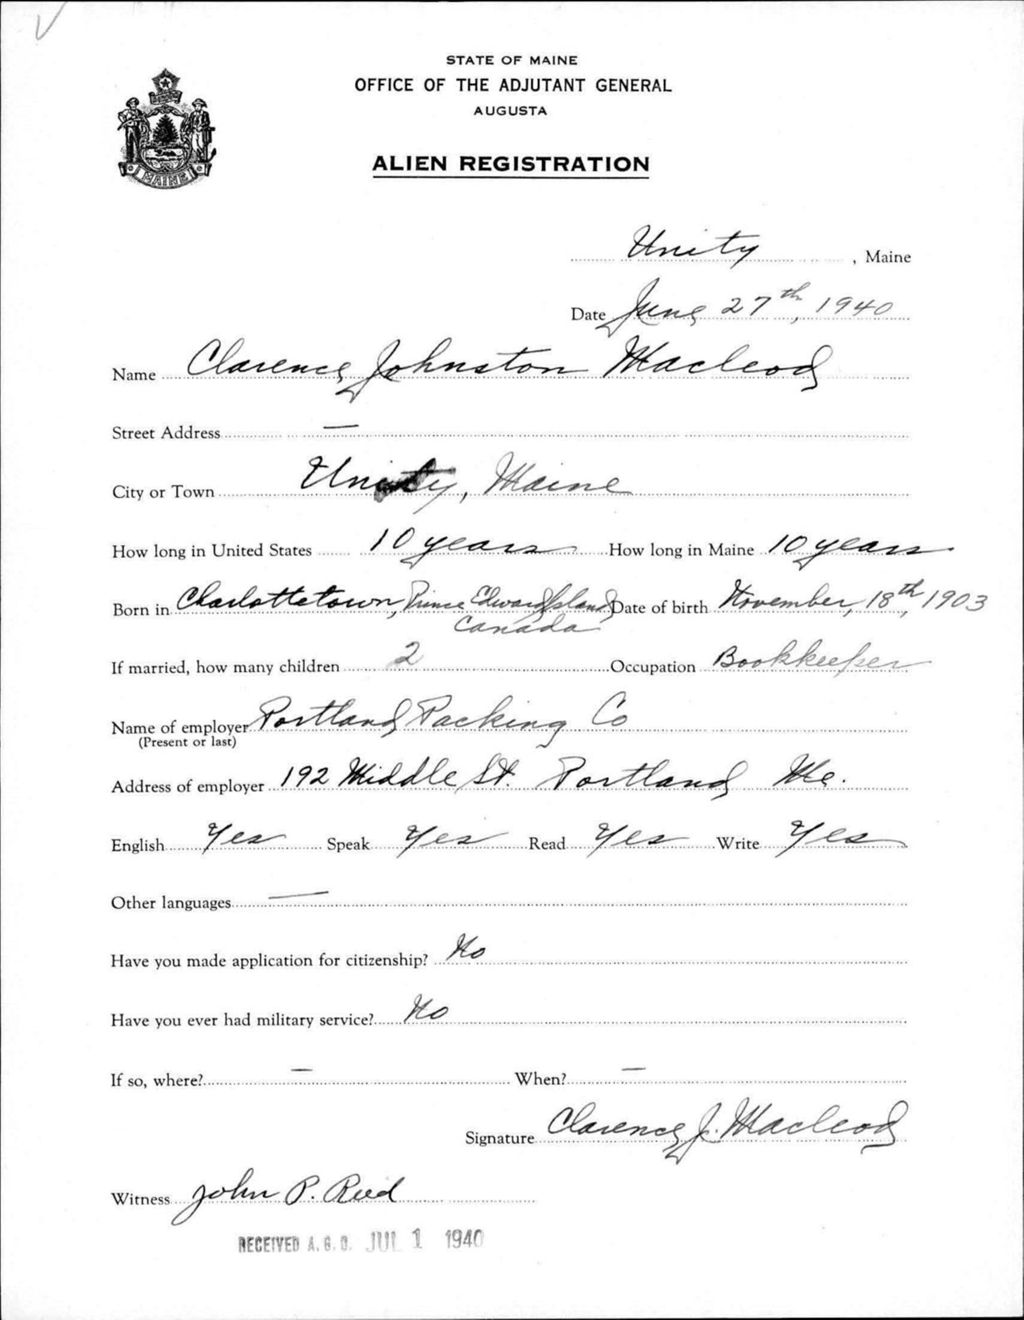 STATE OF MAINE
OFFICE OF THE ADJUTANT GENERAL
AUGUSTA
ALIEN REGISTRATION
MAINE
Unity, Maine
Date June 27th, 1940
Name Clarence Johnston Macleod
Street Address —
City or Town Unity, Maine
How long in United States 10 years How long in Maine 10 years
Born in Charlottetown, Prince Edward Island, Canada Date of birth November, 18th, 1903
If married, how many children 2 Occupation Bookkeeper
Name of employer Portland Packing Co
(Present or last)
Address of employer 192 Middle St. Portland Me.
English Yes Speak Yes Read Yes Write Yes
Other languages —
Have you made application for citizenship? No
Have you ever had military service? No
If so, where? — When? —
Signature Clarence J. Macleod
Witness John P. Reed
RECEIVED A.G.O. JUL 1 1940